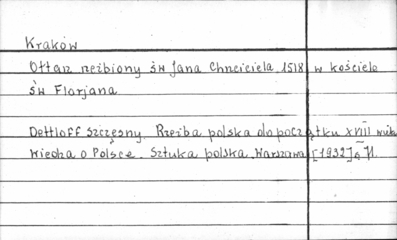 Kraków
Ołtarz rzeźbiony św Jana Chrzciciela 1518 w kościele
św Florjana
Dettloff Szczęsny. Rzeźba polska do początku XVIII wiek
Wiedza o Polsce. Sztuka polska. Warszawa [1932]